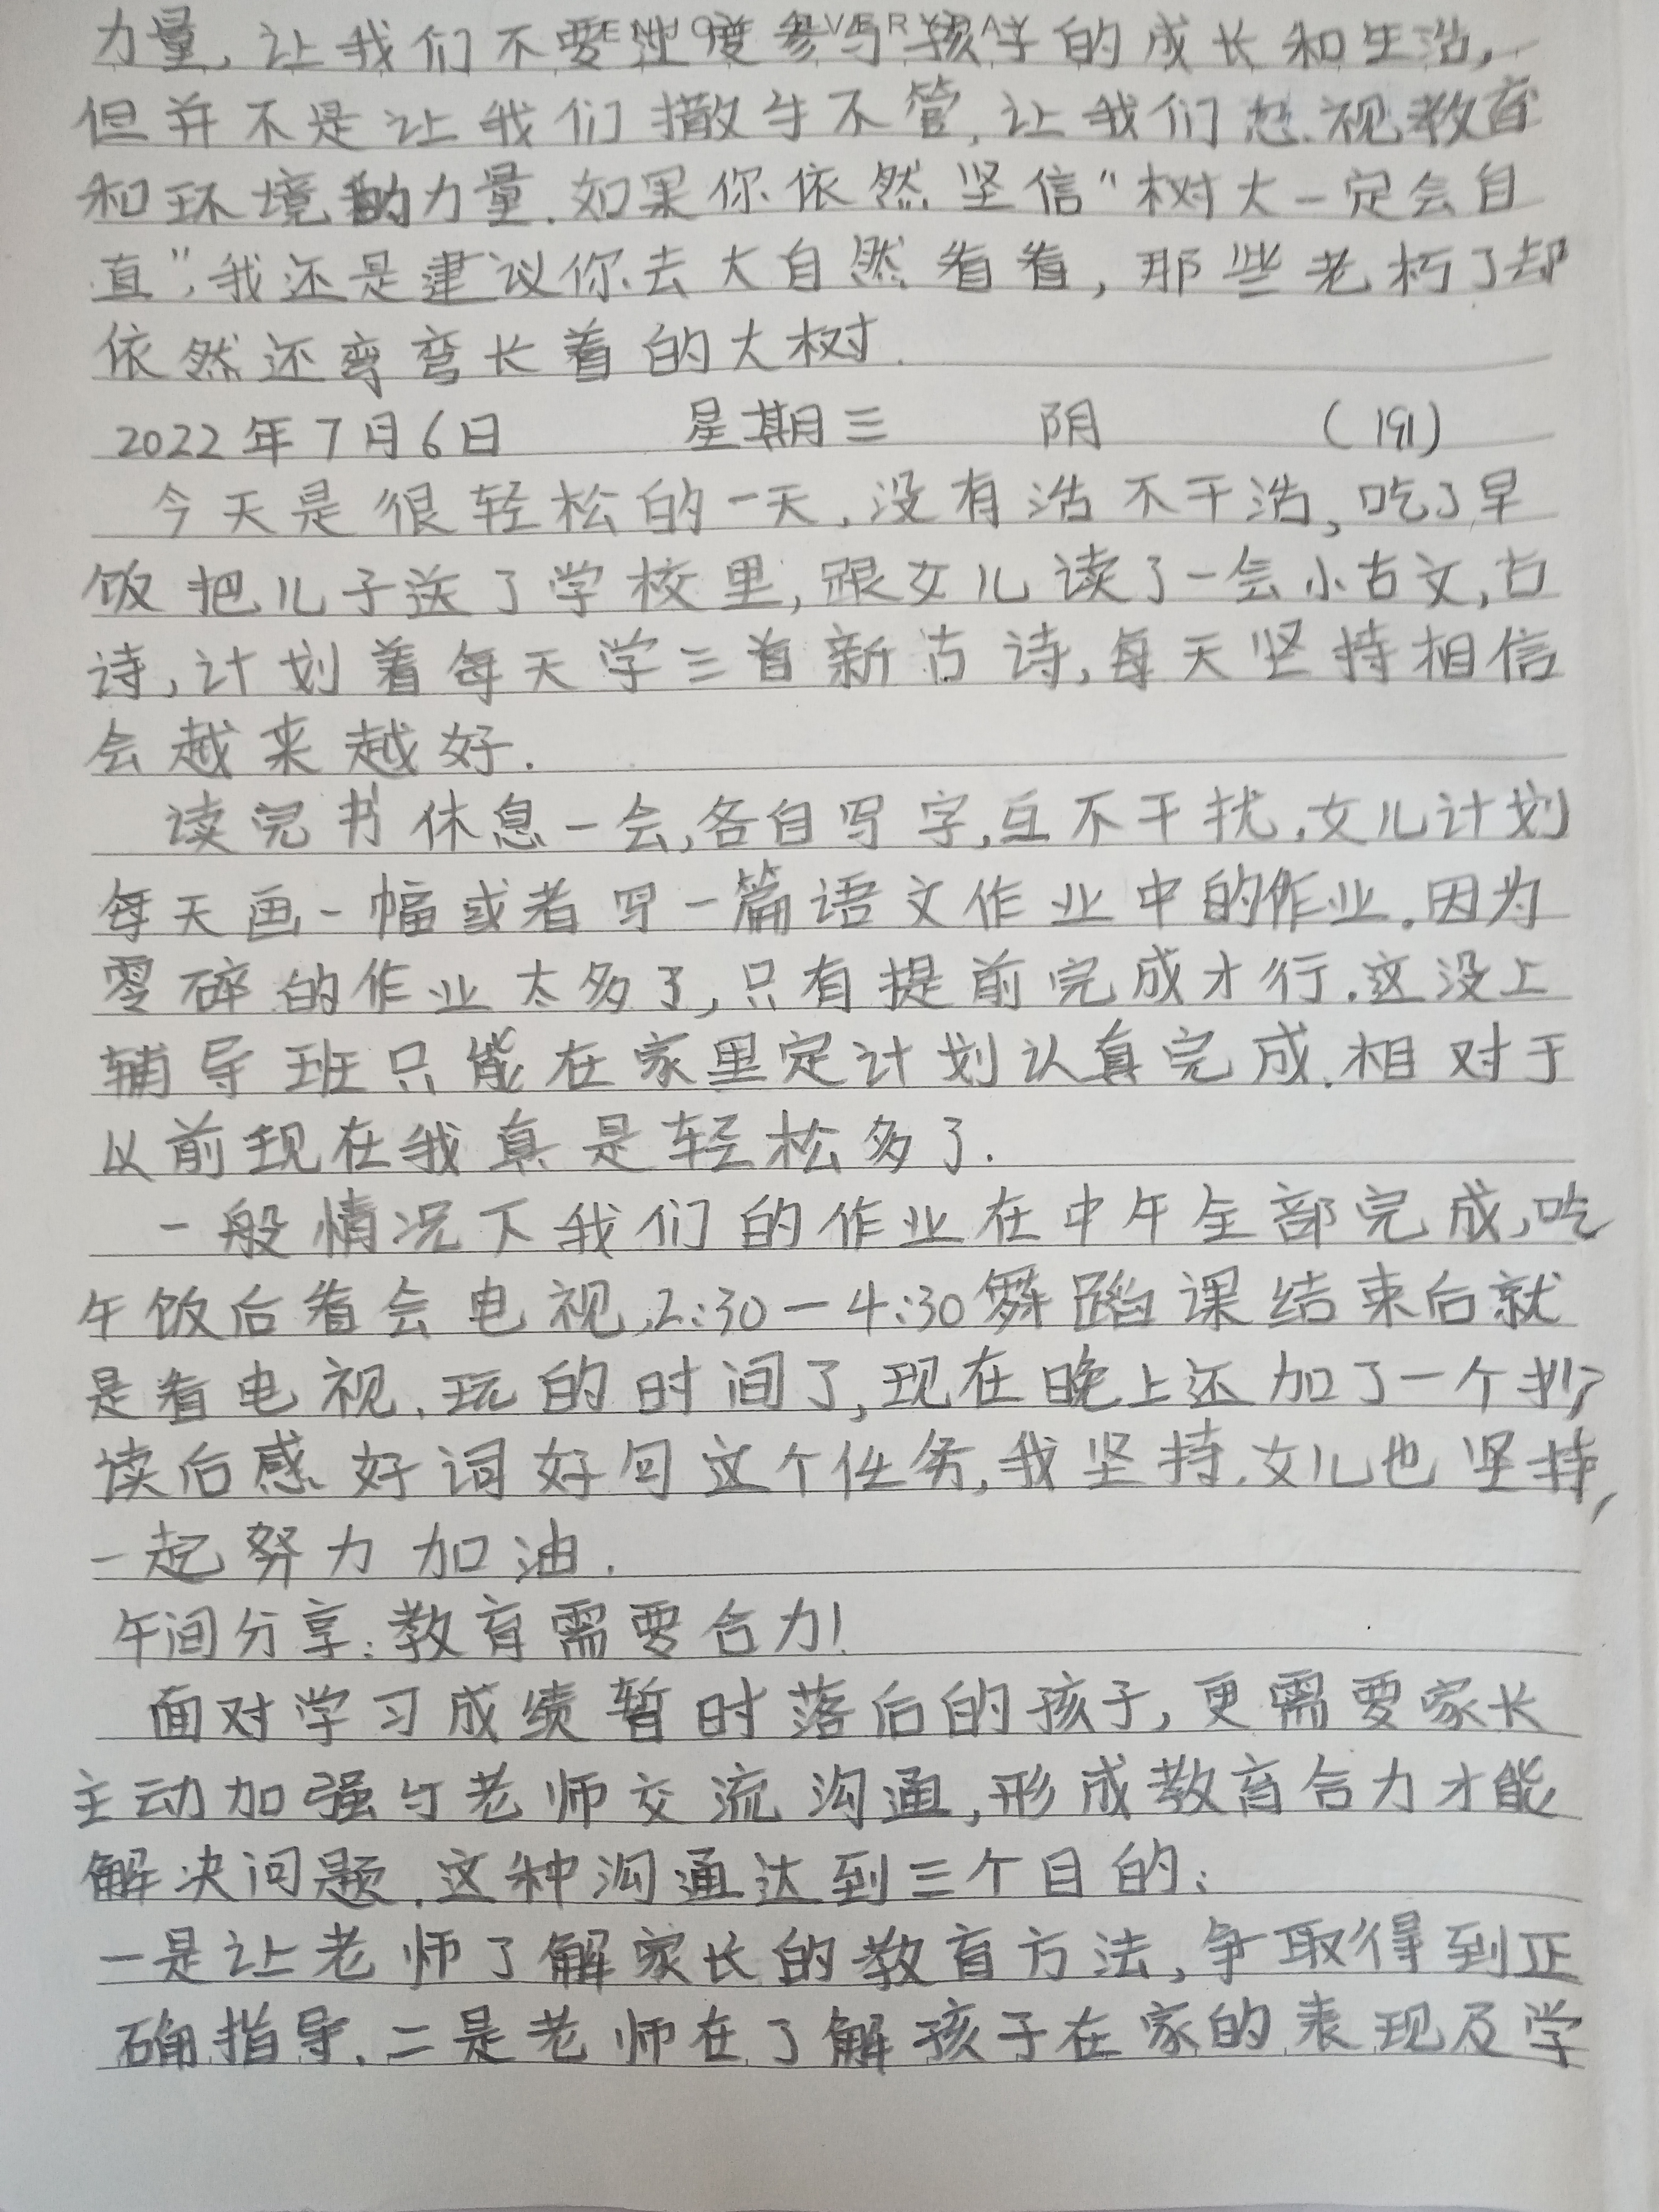 ENJOY EVERYDAY
力量，让我们不要过度参与孩子的成长和生活，
但并不是让我们撒手不管，让我们忽视教育
和环境的力量.如果你依然坚信"树大一定会自
直"，我还是建议你去大自然看看，那些老朽了却
依然还弯弯长着的大树.
2022年7月6日 星期三 阴 (191)
今天是很轻松的一天，没有活不干活，吃了早
饭把儿子送了学校里，跟女儿读了一会小古文，古
诗，计划着每天学三首新古诗，每天坚持相信
会越来越好.
读完书休息一会，各自写字，互不干扰.女儿计划
每天画一幅或者写一篇语文作业中的作业.因为
零碎的作业太多了，只有提前完成才行.这没上
辅导班只能在家里定计划认真完成.相对于
以前现在我真是轻松多了.
一般情况下我们的作业在中午全部完成，吃
午饭后看会电视，2:30—4:30舞蹈课结束后就
是看电视、玩的时间了，现在晚上还加了一个抄
读后感、好词好句这个任务，我坚持.女儿也坚持，
一起努力加油.
午间分享：教育需要合力！
面对学习成绩暂时落后的孩子，更需要家长
主动加强与老师交流沟通，形成教育合力才能
解决问题.这种沟通达到三个目的：
一是让老师了解家长的教育方法，争取得到正
确指导.二是老师在了解孩子在家的表现及学